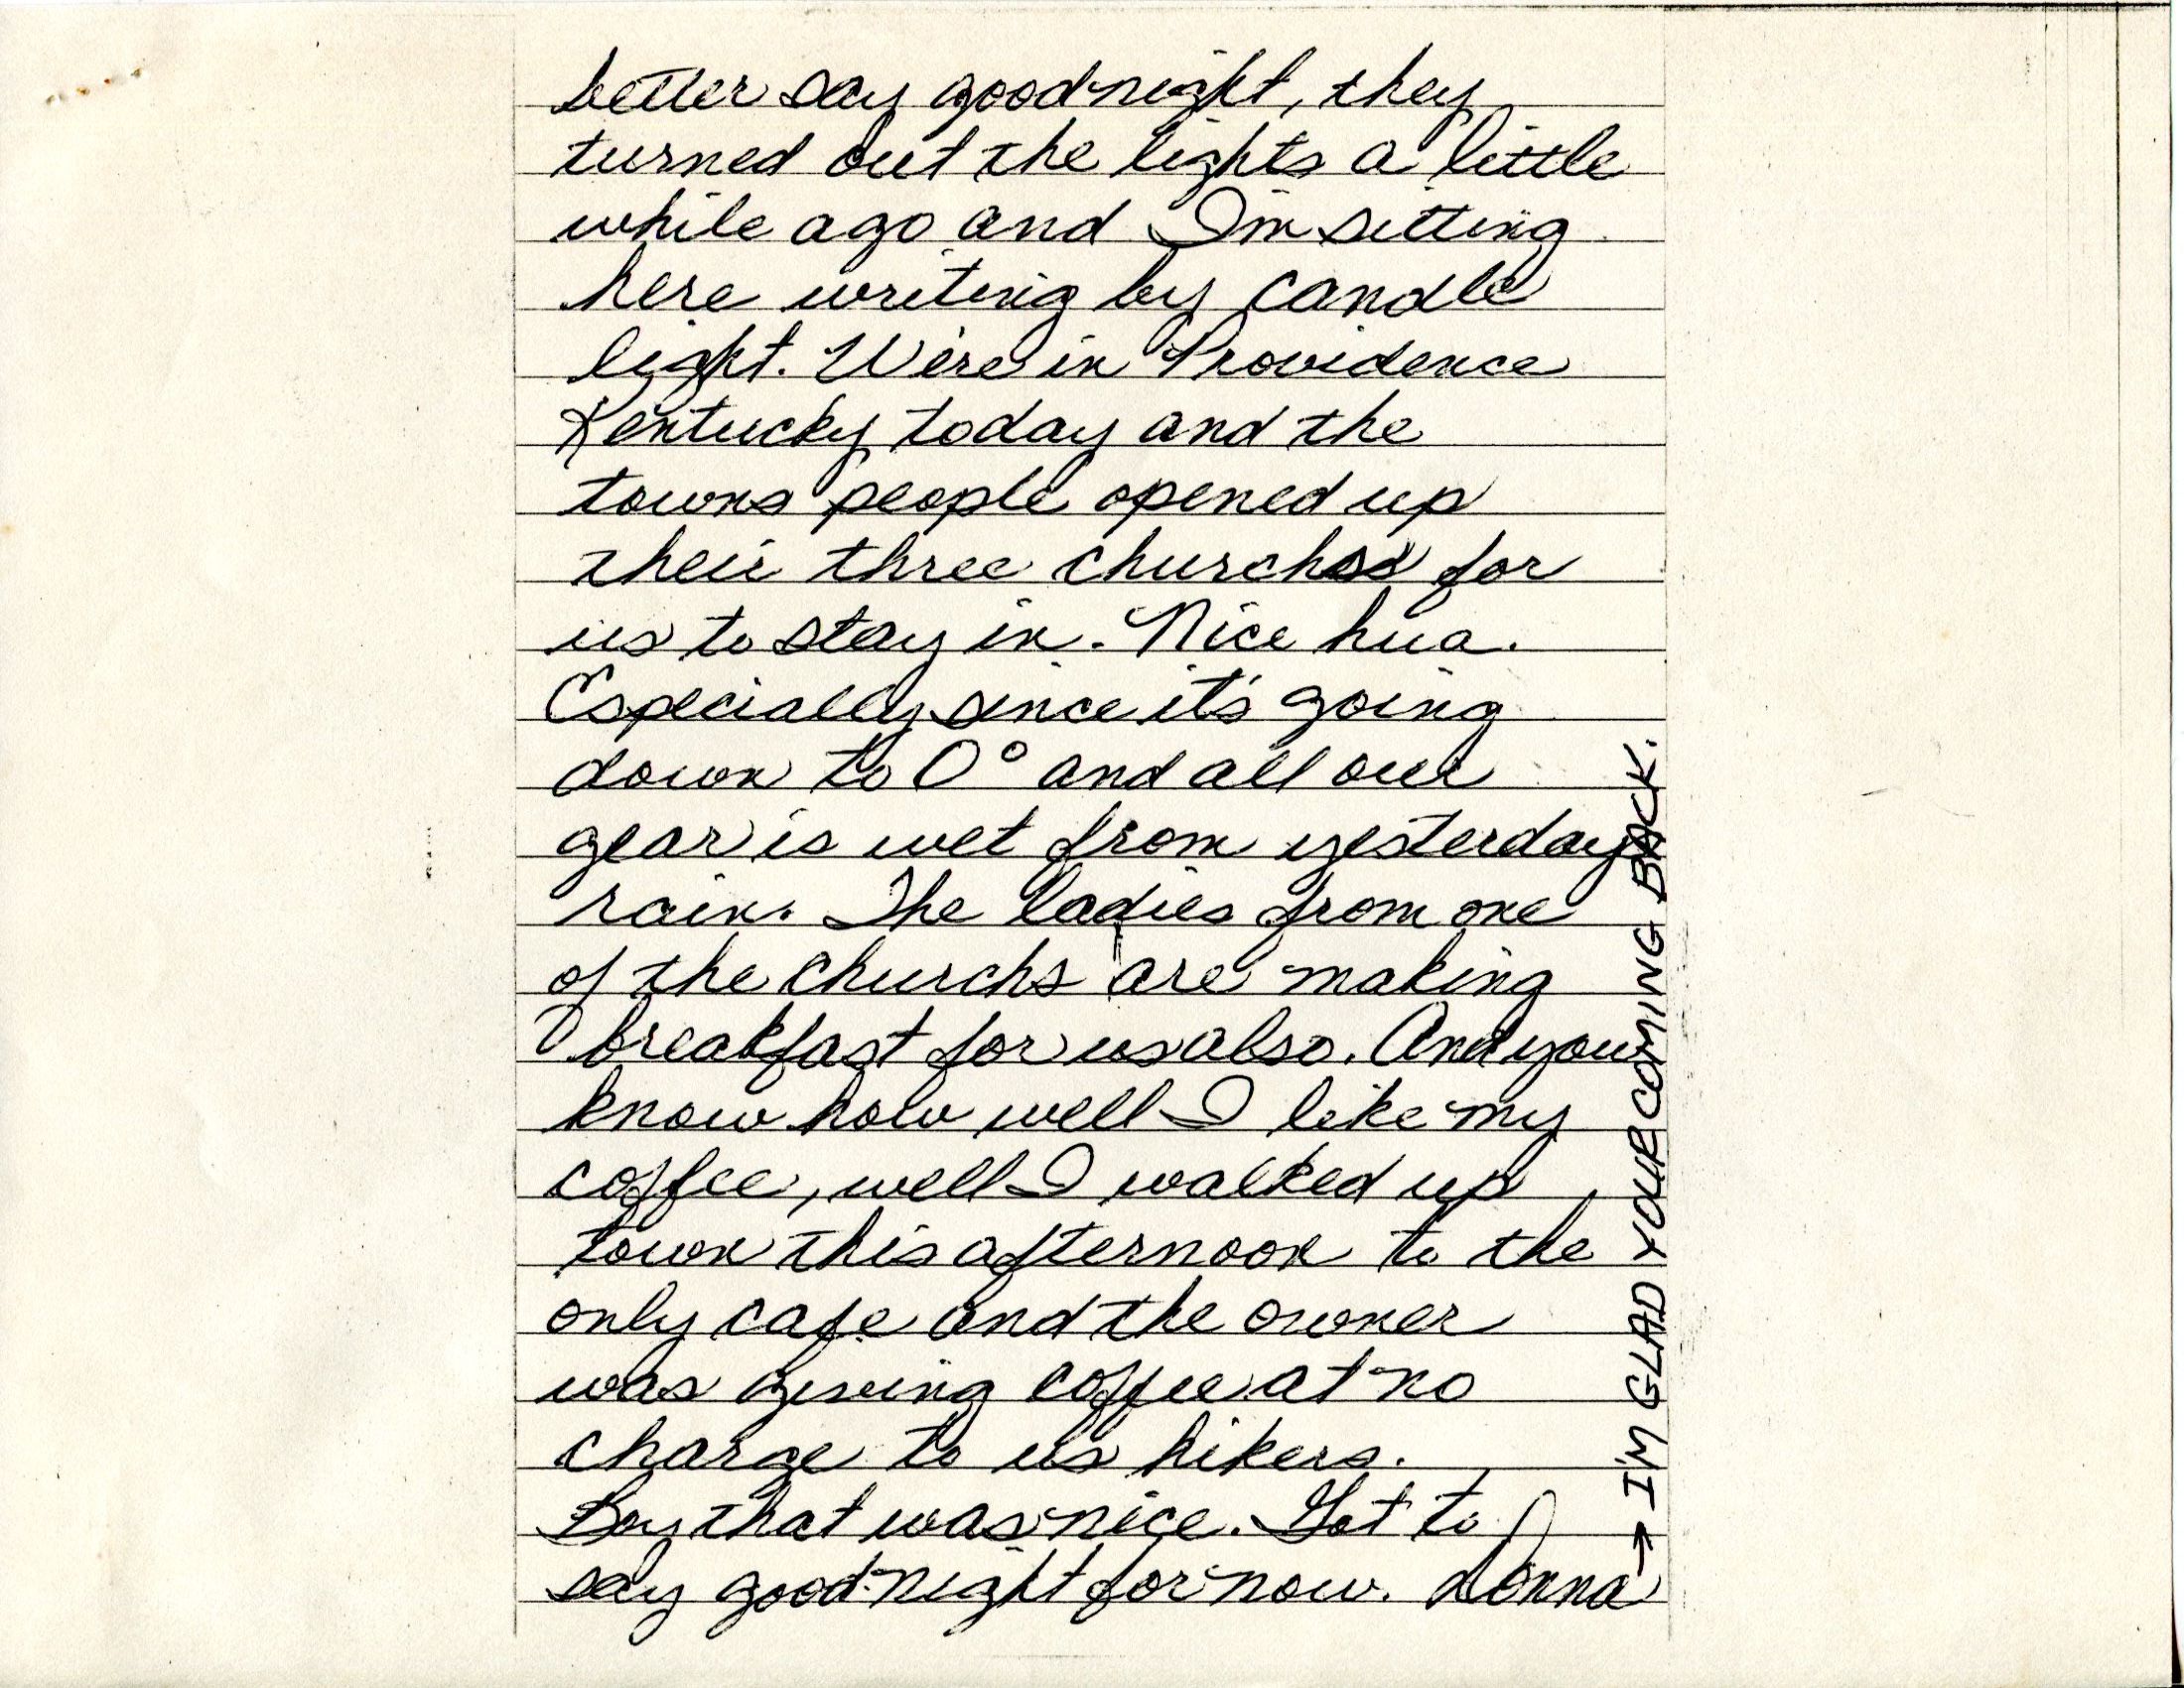 better say good night, they
turned out the lights a little
while ago and I'm sitting
here writing by candle
light. We're in Providence
Kentucky today and the
towns people opened up
their three churches for
us to stay in. Nice hua.
Especially since it's going
down to 0° and all our
gear is wet from yesterdays
rain. The ladies from one
of the churchs are making
breakfast for us also. And you
know how well I like my
coffee, well I walked up
town this afternoon to the
only cafe and the owner
was giving coffee at no
charge to us hikers.
Boy that was nice. Got to
say good night for now. Donna
→ I'M GLAD YOUR COMING BACK.